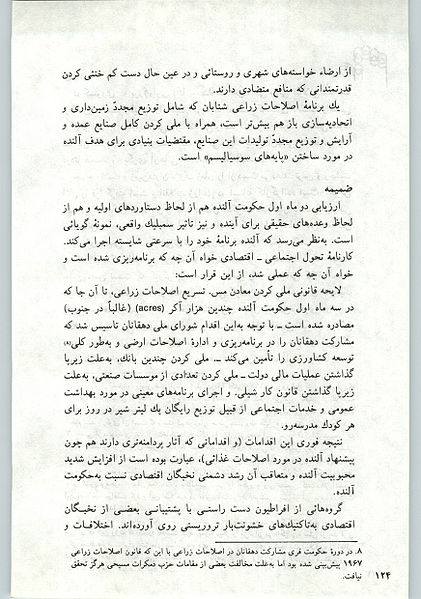 از ارضاء خواسته‌های شهری و روستائی و در عین حال دست کم خنثی کردن
قدرتمندانی که منافع متضادی دارند.
یك برنامهٔ اصلاحات زراعی شتابان که شامل توزیع مجددّ زمین‌داری و
اتحادیه‌سازی باز هم بیش‌تر است، همراه با ملی کردن کامل صنایع عمده و
آرایش و توزیع مجددّ تولیدات این صنایع، مقتضیات بنیادی برای هدف آلنده
در مورد ساختن «پایه‌های سوسیالیسم» است.
ضمیمه
ارزیابی دو ماه اول حکومت آلنده هم از لحاظ دستاوردهای اولیه و هم از
لحاظ وعده‌های حقیقی برای آینده و نیز تاثیر سمبلیك واقعی، نمونهٔ گویائی
است. به‌نظر می‌رسد که آلنده برنامهٔ خود را با سرعتی شایسته اجرا می‌کند.
کارنامهٔ تحول اجتماعی ـ اقتصادی خواه آن چه که برنامه‌ریزی شده است و
خواه آن چه که عملی شد، از این قرار است:
لایحه قانونی ملی کردن معادن مس. تسریع اصلاحات زراعی، تا آن جا که
در سه ماه اول حکومت آلنده چندین هزار آکر (acres) (غالباً در جنوب)
مصادره شده است ـ با توجه به‌این اقدام شورای ملی دهقانان تاسیس شد که
مشارکت دهقانان را در برنامه‌ریزی و ادارهٔ اصلاحات ارضی و به‌طور کلی(۸)
توسعه کشاورزی را تأمین می‌کند ـ. ملی کردن چندین بانك، به‌علت زیرپا
گذاشتن عملیات مالی دولت ـ ملی کردن تعدادی از موسسات صنعتی، به‌علت
زیرپا گذاشتن قانون کار شیلی. و اجرای برنامه‌های معینی در مورد بهداشت
عمومی و خدمات اجتماعی از قبیل توزیع رایگان یك لیتر شیر در روز برای
هر کودك مدرسه‌رو.
نتیجه فوری این اقدامات (و اقداماتی که آثار پردامنه‌تری دارند هم چون
پیشنهاد آلنده در مورد اصلاحات غذائی)، عبارت بوده است از افزایش شدید
محبوبیت آلنده و متعاقب آن رشد دشمنی نخبگان اقتصادی نسبت به‌حکومت
آلنده.
گروه‌هائی از افراطیون دست راستی با پشتیبانی بعضی از نخبگان
اقتصادی به‌تاکتیك‌های خشونت‌بار تروریستی روی آورده‌اند. اختلافات و
۸. در دورهٔ حکومت فری مشارکت دهقانان در اصلاحات زراعی با این که قانون اصلاحات زراعی
۱۹۶۷ پیش‌بینی شده بود اما به‌علت مخالفت بعضی از مقامات حزب دمکرات مسیحی هرگز تحقق
نیافت.
۱۲۴